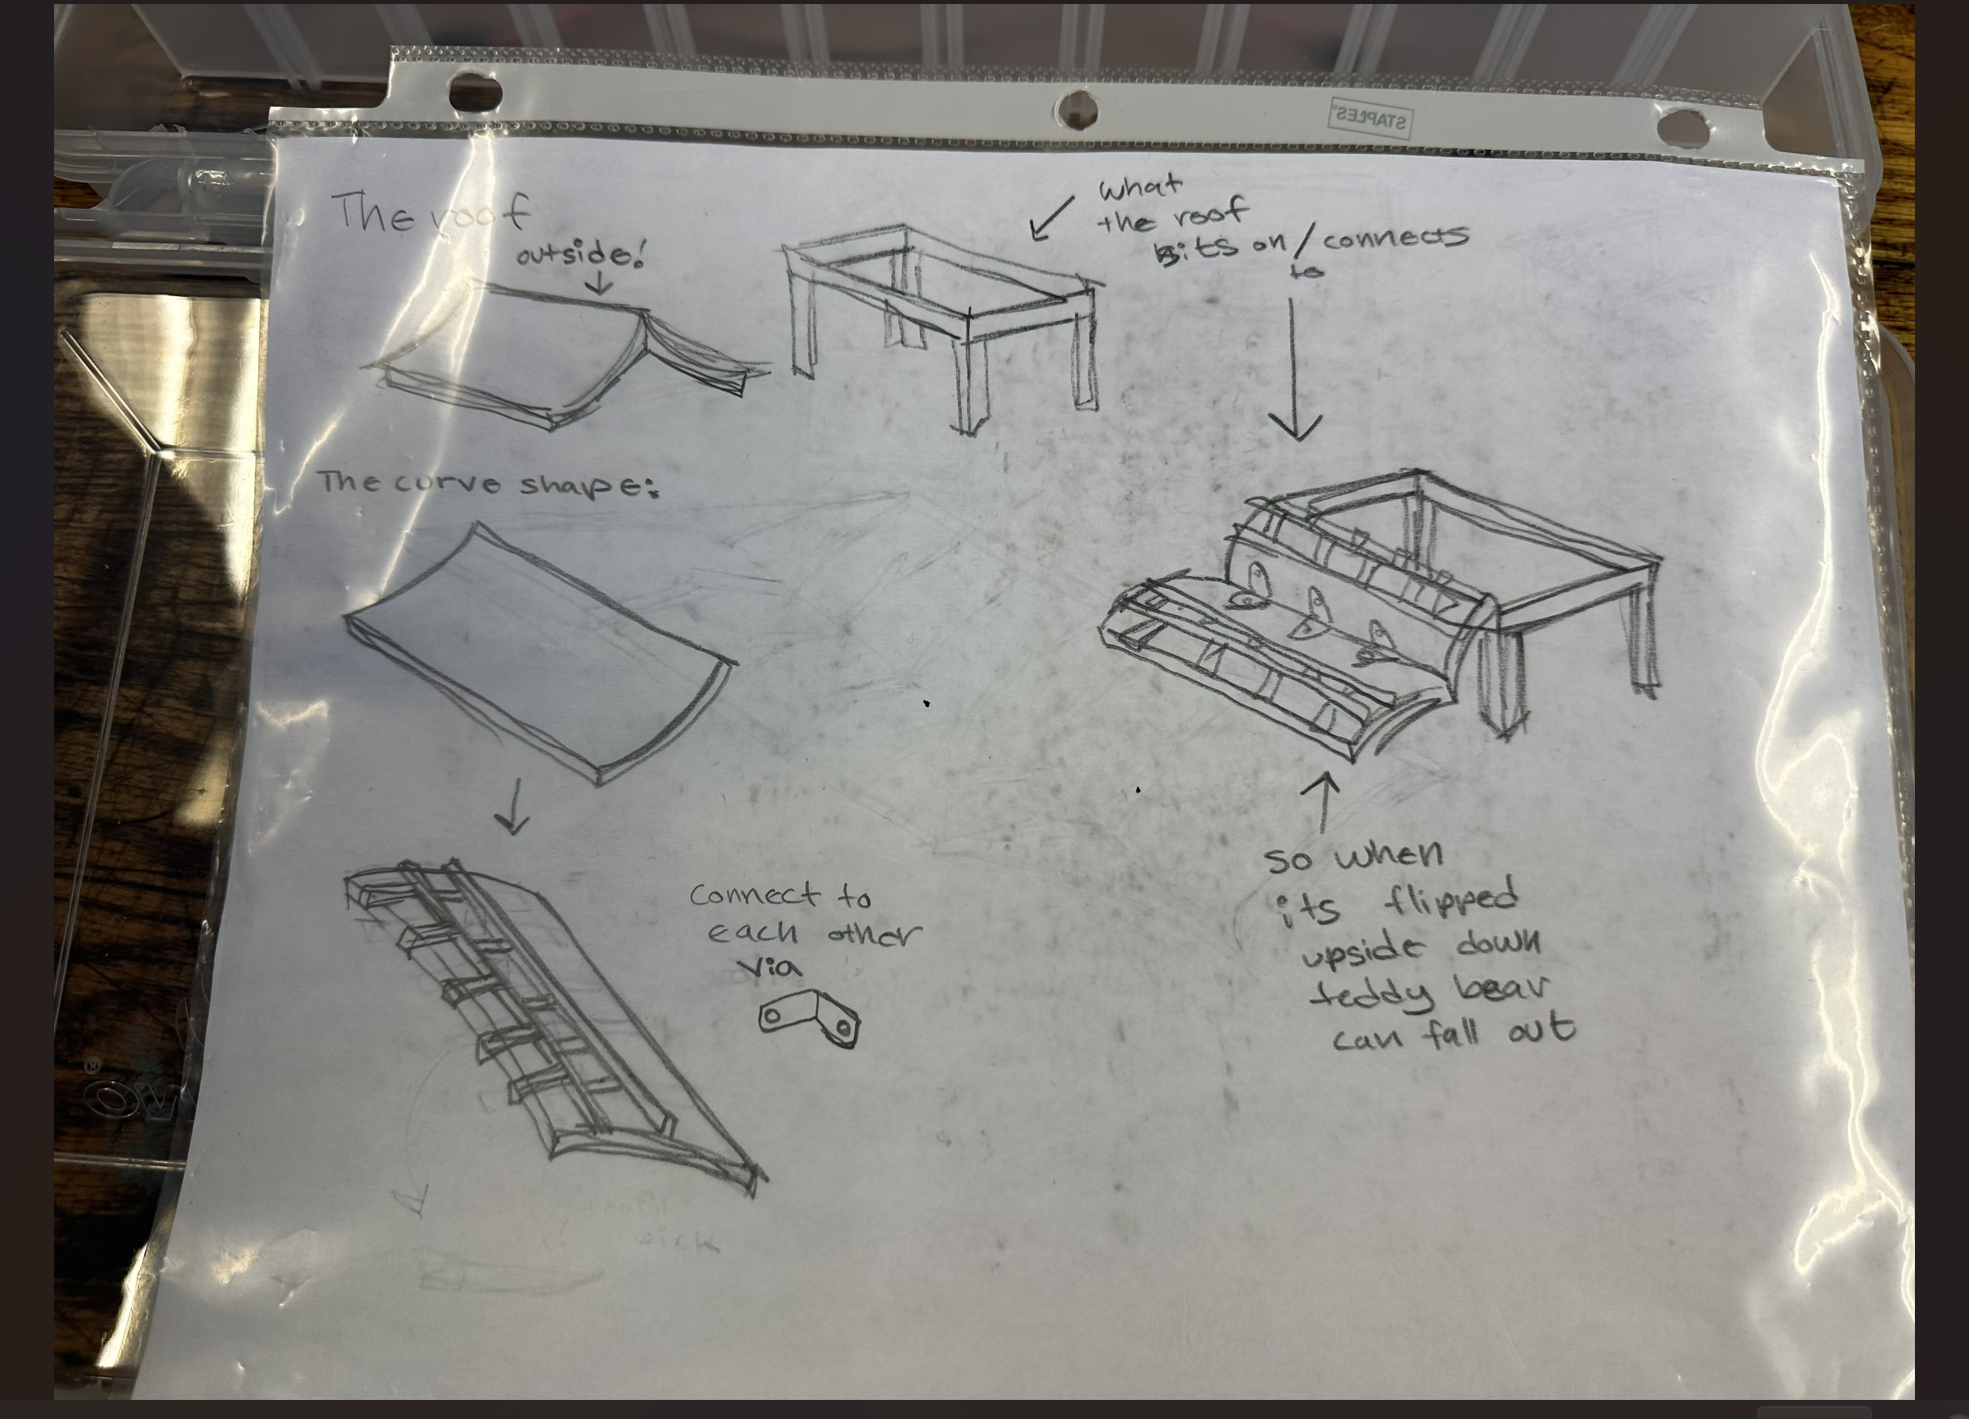 The roof
outside!
what
the roof
sits on / connects
to
STAPLES®
The curve shape:
connect to
each other
via
so when
its flipped
upside down
teddy bear
can fall out